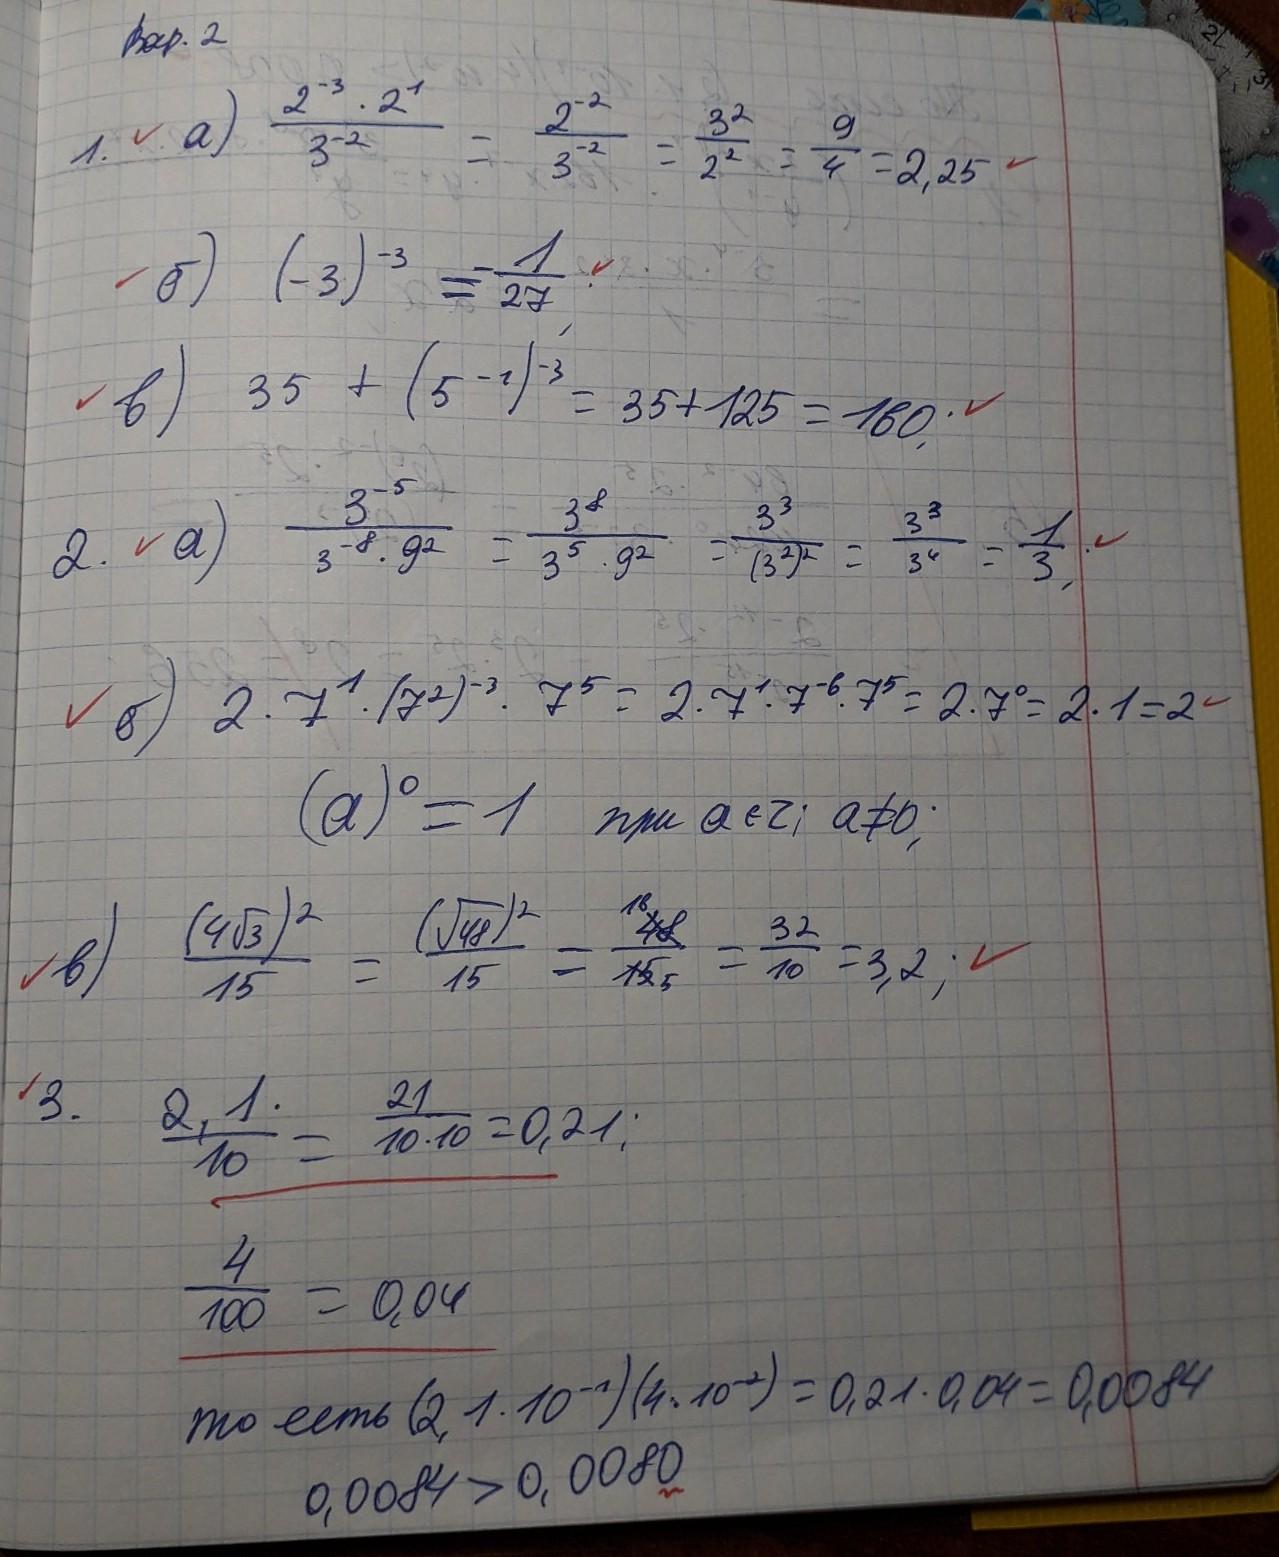 Вар. 2
1. а) \frac{2^{-3} \cdot 2^1}{3^{-2}} = \frac{2^{-2}}{3^{-2}} = \frac{3^2}{2^2} = \frac{9}{4} = 2,25
б) (-3)^{-3} = -\frac{1}{27};
в) 35 + (5^{-1})^{-3} = 35+125 = 160;
2. а) \frac{3^{-5}}{3^{-8} \cdot 9^2} = \frac{3^8}{3^5 \cdot 9^2} = \frac{3^3}{(3^2)^2} = \frac{3^3}{3^4} = \frac{1}{3};
б) 2 \cdot 7^1 \cdot (7^2)^{-3} \cdot 7^5 = 2 \cdot 7^1 \cdot 7^{-6} \cdot 7^5 = 2 \cdot 7^0 = 2 \cdot 1 = 2
(a)^0 = 1 при a ∈ Z; a ≠ 0;
в) \frac{(4\sqrt{3})^2}{15} = \frac{(\sqrt{48})^2}{15} = \frac{^{16}48}{15_5} = \frac{32}{10} = 3,2;
3. \frac{2,1}{10} = \frac{21}{10 \cdot 10} = 0,21;
\frac{4}{100} = 0,04
то есть (2,1 \cdot 10^{-1})(4 \cdot 10^{-2}) = 0,21 \cdot 0,04 = 0,0084
0,0084 > 0,0080